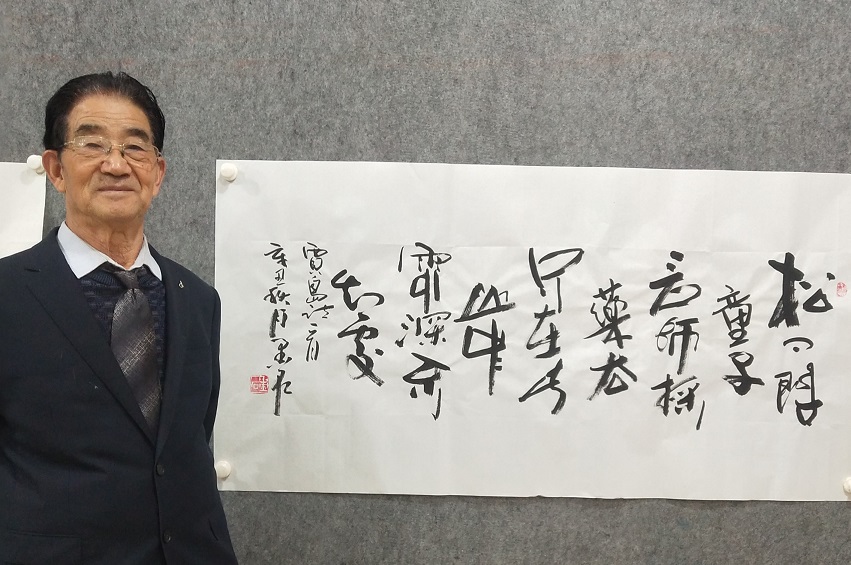 松下問
童子
言師採
藥去
只在此
山中
雲深不
知處
賈島詩
辛丑秋月